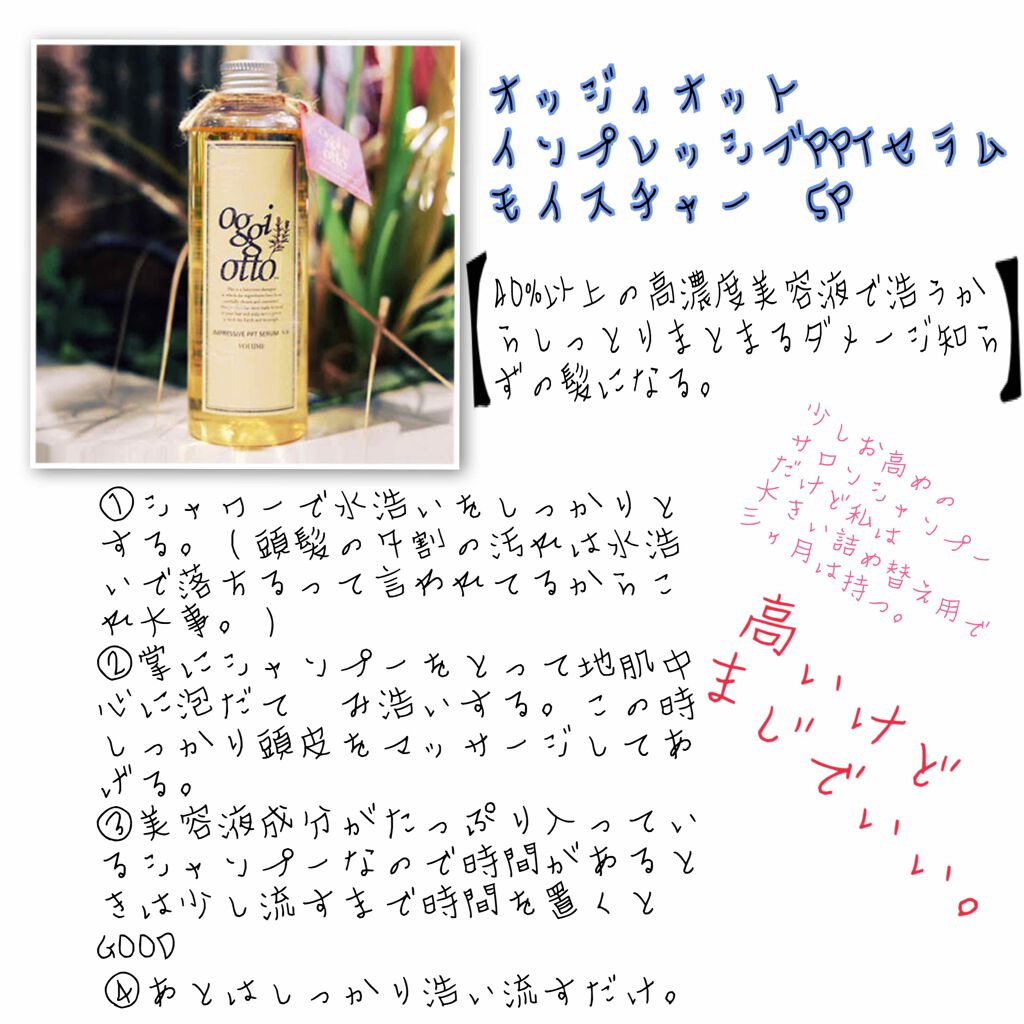 オッジィオット
インプレッシブPPTセラム
モイスチャー SP
oggi
otto
oggi
otto
IMPRESSIVE PPT SERUM
VOLUME
【40%以上の高濃度美容液で浩うか
らしっとりまとまるダメージ知ら
ずの髪になる。】
少しお高めの
サロンシャンプー
だけど私は
大きい詰め替え用で
三ヶ月は持つ。
高いけど
まじでいい。
①シャワーで水浩いをしっかりと
する。(頭髪の7割の汚れは水浩
いで落ちるって言われてるからこ
れ大事。)
②掌にシャンプーをとって地肌中
心に泡だて み浩いする。この時
しっかり頭皮をマッサージしてあ
げる。
③美容液成分がたっぷり入ってい
るシャンプーなので時間があると
きは少し流すまで時間を置くと
GOOD
④あとはしっかり浩い流すだけ。